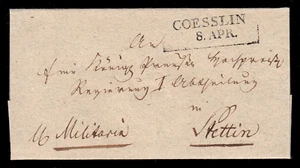 COESSLIN
8. APR.
An
Königl Preuß
Regierung I Abtheilung
in
Militaria Stettin